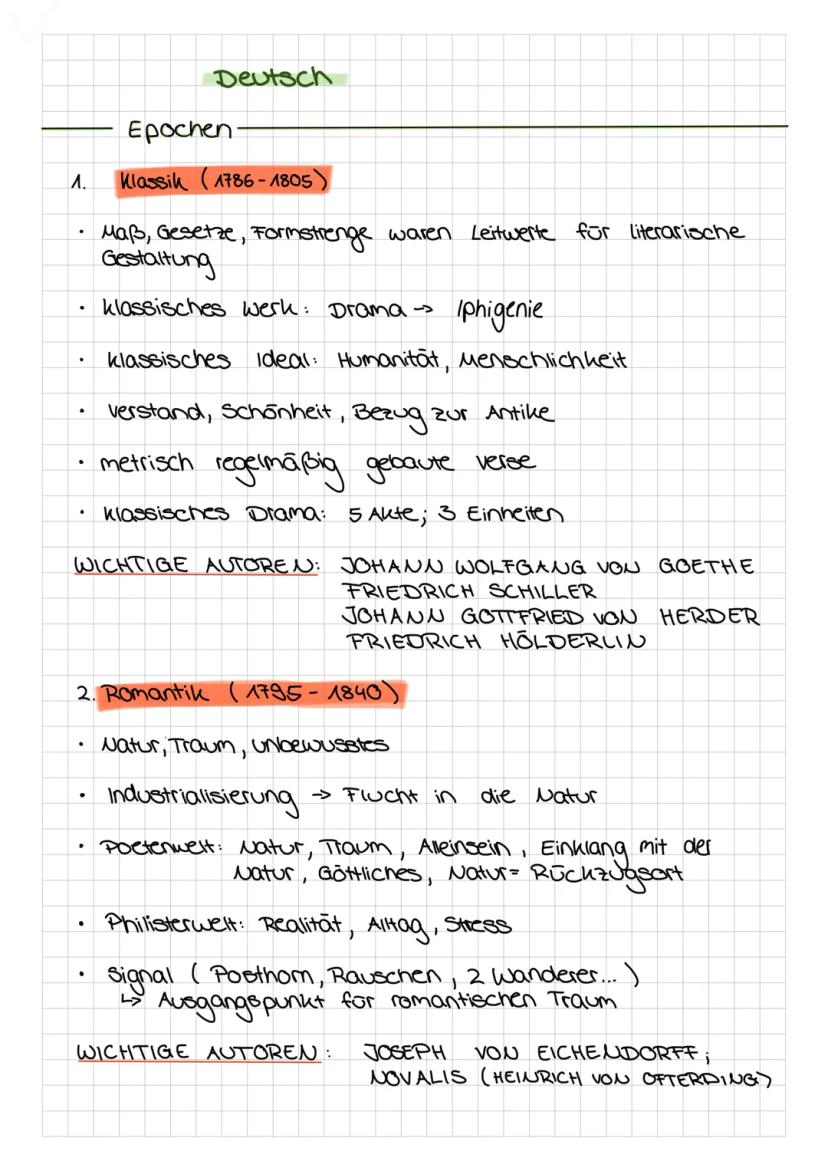 Deutsch
Epochen
1. Klassik (1786-1805)
· Maß, Gesetze, Formstrenge waren Leitwerte für literarische
Gestaltung
· klassisches Werk: Drama → Iphigenie
· klassisches Ideal: Humanität, Menschlichkeit
· Verstand, Schönheit, Bezug zur Antike
· metrisch regelmäßig gebaute Verse
· klassisches Drama: 5 Akte; 3 Einheiten
WICHTIGE AUTOREN: JOHANN WOLFGANG VON GOETHE
FRIEDRICH SCHILLER
JOHANN GOTTFRIED VON HERDER
FRIEDRICH HÖLDERLIN
2. Romantik (1795-1840)
· Natur, Traum, Unbewusstes
· Industrialisierung → Flucht in die Natur
· Poetenwelt: Natur, Traum, Alleinsein, Einklang mit der
Natur, Göttliches, Natur= Rückzugsort
· Philisterwelt: Realität, Alltag, Stress
· Signal (Posthorn, Rauschen, 2 Wanderer...)
↳ Ausgangspunkt für romantischen Traum
WICHTIGE AUTOREN: JOSEPH VON EICHENDORFF;
NOVALIS (HEINRICH VON OFTERDING)